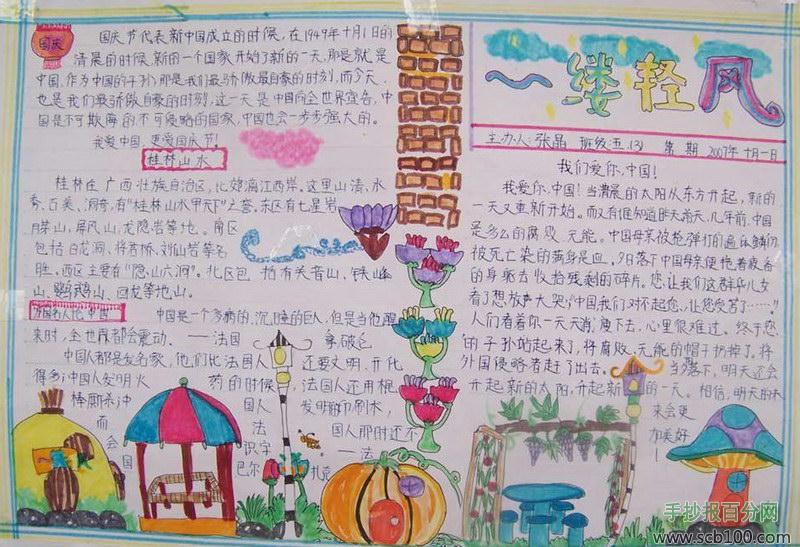 国庆
国庆节代表新中国成立的时候,在1949年十月1日的
清晨的时候,新的一个国家开始了新的一天,那是就是
中国,作为中国的子孙那是我们最骄傲最自豪的时刻,而今天,
也是我们最骄傲自豪的时刻,这一天是中国向全世界宣告,中
国是不可欺侮的不可侵略的国家,中国也会一步步强大的。
我爱中国,更爱国庆节!
桂林山水
桂林在广西壮族自治区,比邻漓江西岸。这里山清、水
秀、石美、洞奇,有“桂林山水甲天下”之誉。东区有七星岩
月牙山,屏风山,龙隐岩等地。南区
包括白龙洞、将君桥、刘仙岩等名
胜,西区主要有“隐山六洞”。北区包括有关音山、铁山
山、鹦鹉山、回龙等地山。
外国名人论中国
中国是一个多病的、沉睡的巨人,但是当他醒
来时,全世界都会震动。——法国 拿破仑
中国人都是发名家,他们比法国人还要文明,开化
得多;中国人发明火药的时候,法国人还用棍
棒厮杀;中国人发明
而法国人那时还不
会识字
国 ——法
巴尔扎克
一缕轻风
主办人:张晶 班级:五.(3) 第 期 2007年十月一日
我们爱你,中国!
我爱你,中国!当清晨的太阳从东方升起,新的
一天又重新开始。而又有谁知道昨天前天,几年前,中国
是多么的腐败、无能。中国母亲被枪弹打的遍体鳞伤
被死亡染的满身是血。夕日落下中国母亲便拖着疲惫
的身躯去收拾残剩的碎片。您,让我们这群华儿女
看了想放声大哭;中国我们对不起您、让您受苦了……!
人们看着你一天天消瘦下去,心里很难过。终于您
的子孙站起来了,将腐败、无能的帽子扔掉了。将
外国侵略者赶了出去。夕阳落下,明天还会
开起新的太阳,升起新的一天。相信,明天的天
来会更
加美好
!
手抄报百分网
www.scb100.com